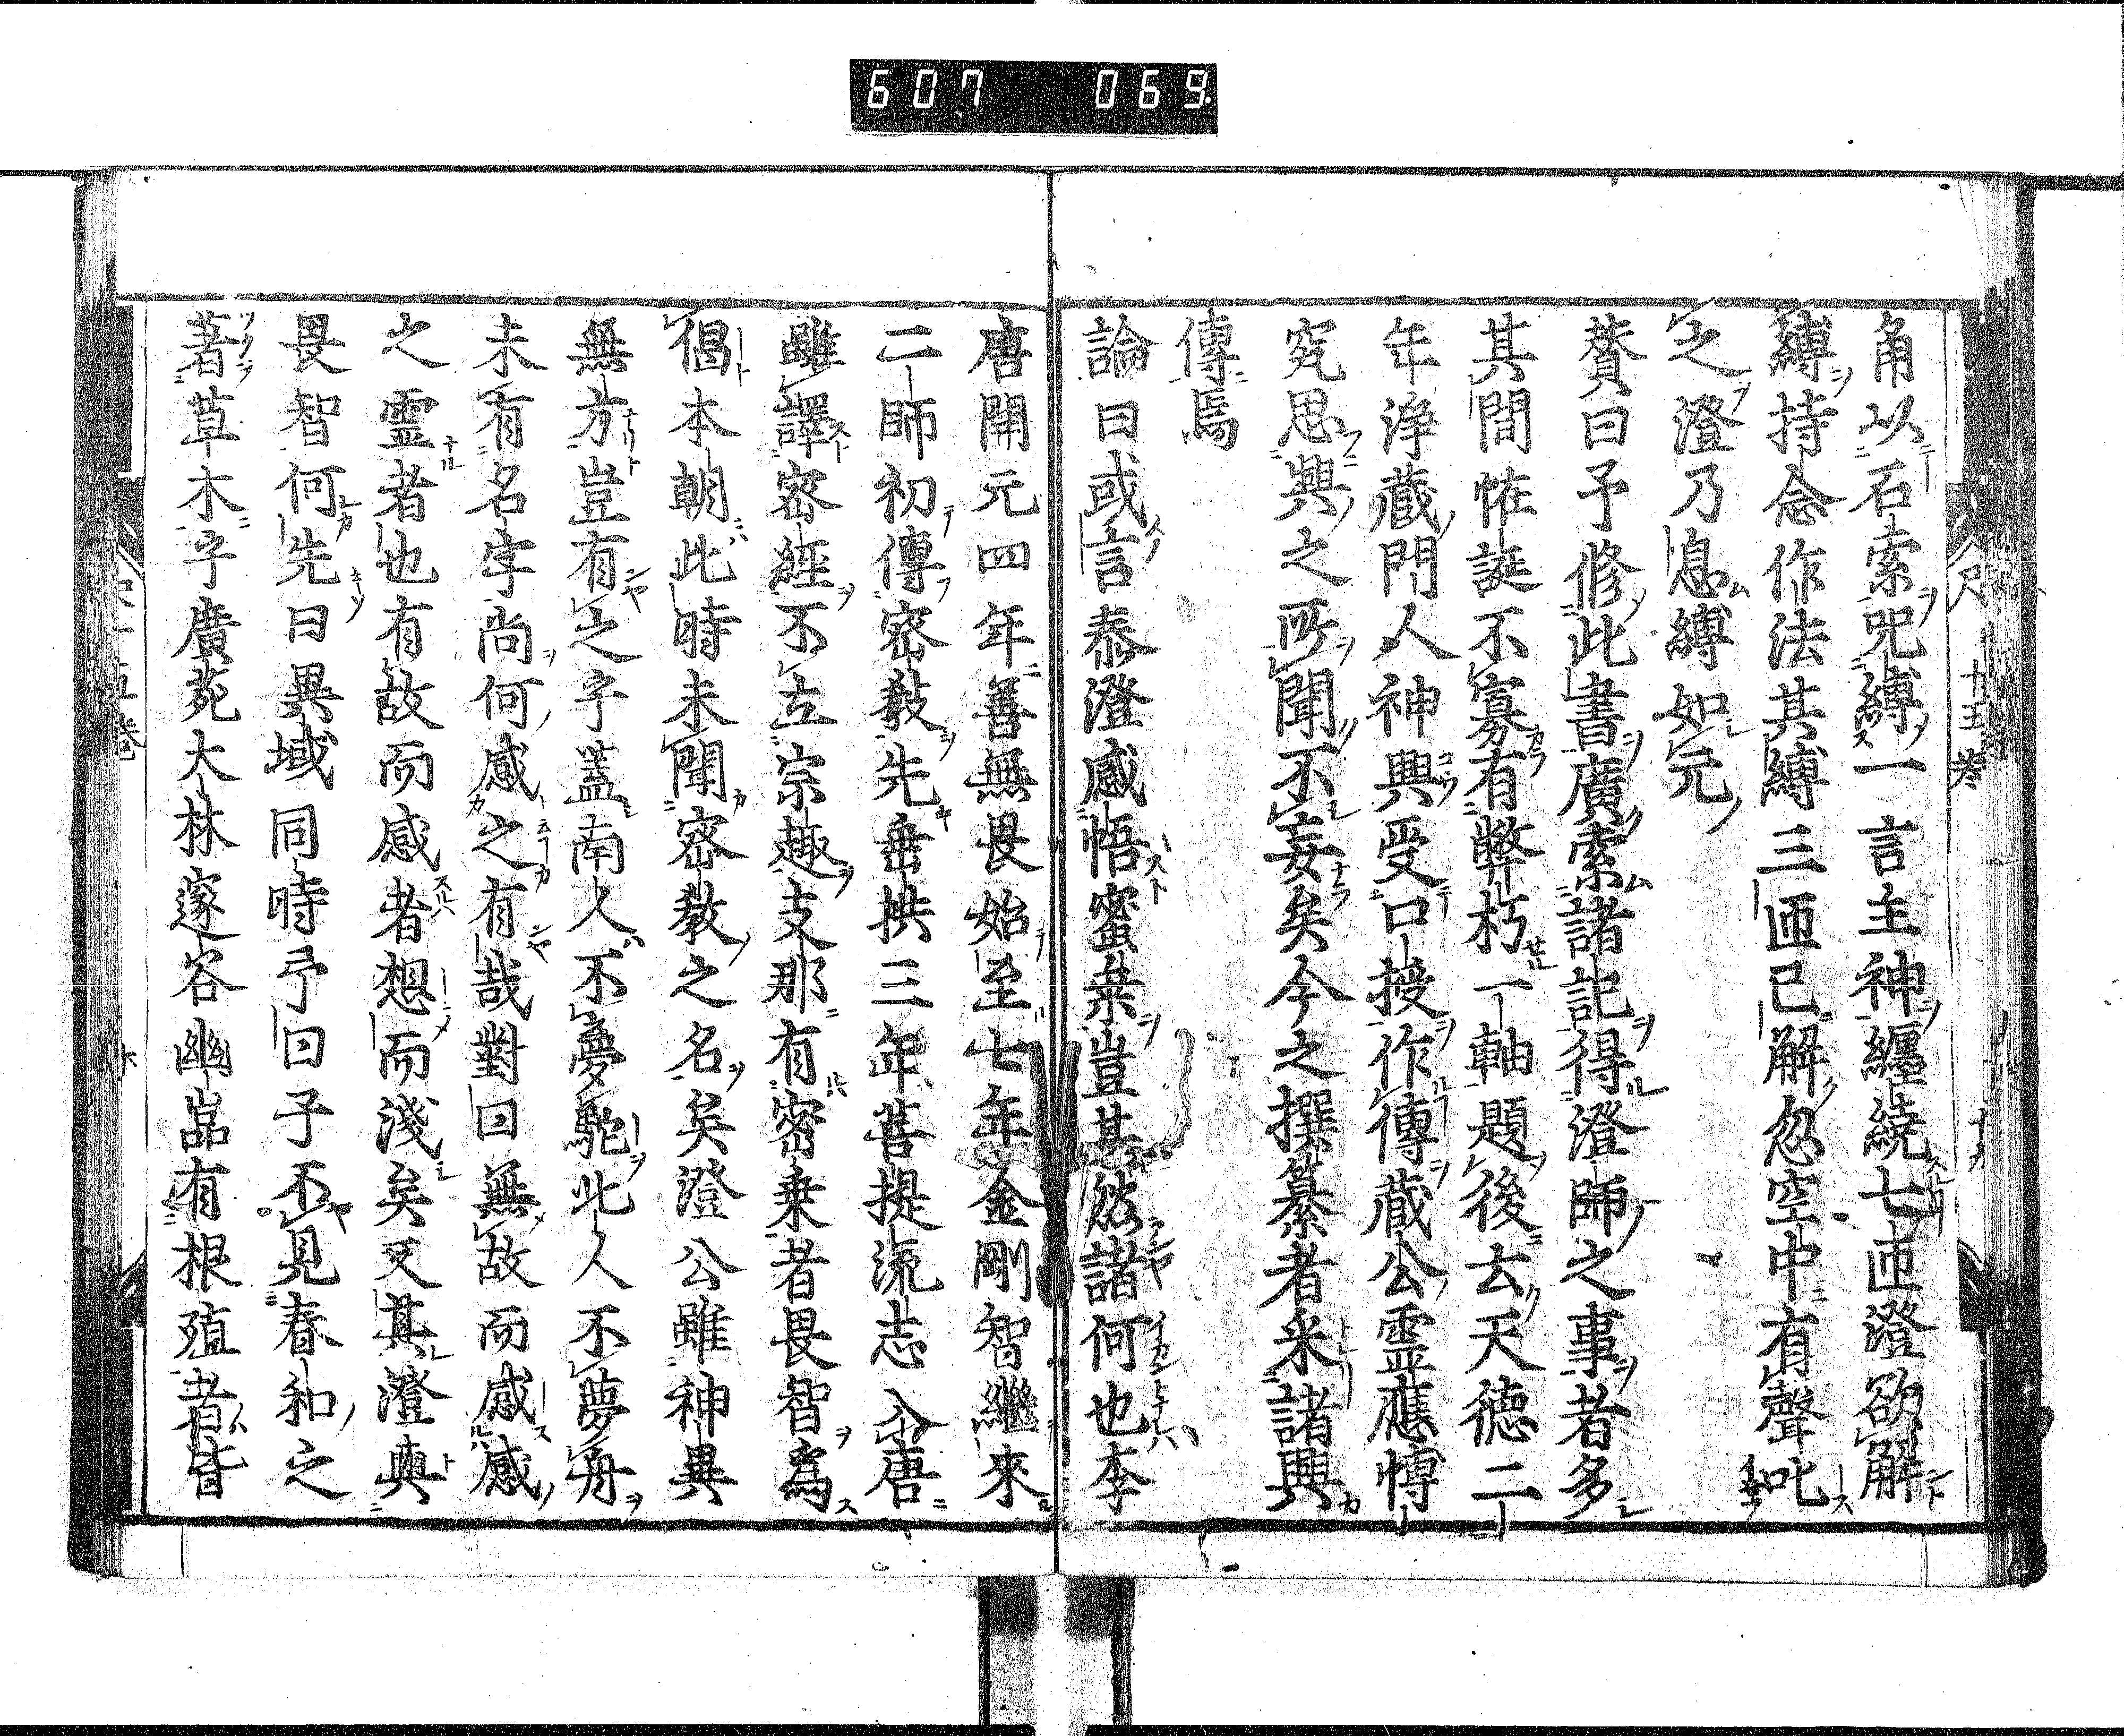 607 069
十五巻
角以石索咒縛一言主神纏繞七匝澄欲解
縛持念作法其縛三匝已解忽空中有聲叱
之澄乃息縛如元
賛曰予修此書廣索諸記得澄師之事者多
其間恠誕不寡有弊朽一軸題後云天德二
年淨藏門人神興受口授作傳藏公霊應愽
究思興之所聞不妄矣今之撰纂者采諸興
傳焉
論曰或言泰澄感悟蜜乗豈其然諸何也李
唐開元四年善無畏始至七年金剛智繼來
二師初傳密敎先垂拱三年菩提流志入唐
雖譯密經不立宗趣支那有密乗者畏智爲
倡本朝此時未聞密教之名矣澄公雖神異
無方豈有之乎蓋南人不夢駝北人不夢舟
未有名字尚何感之有哉對曰無故而感感
之霊者也有故而感者想而淺矣又其澄與
畏智何先曰異域同時乎曰子不見春和之
著草木乎廣苑大林邃谷幽嵓有根殖者皆